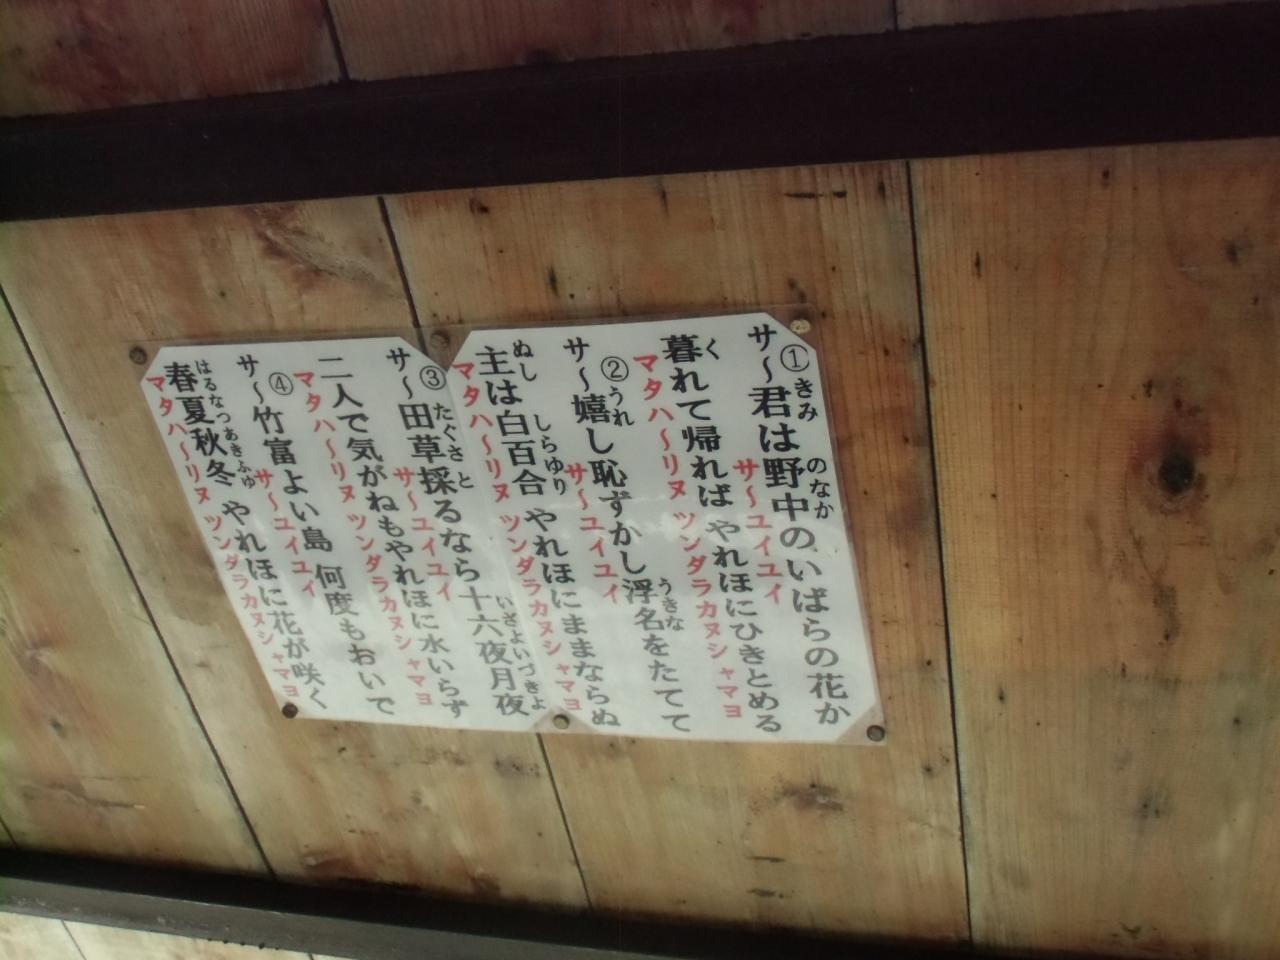 ①
サ～君は野中の、いばらの花か
サ～ユイユイ
暮れて帰れば やれほにひきとめる
マタハ～リヌ ツンダラカヌシャマヨ
②
サ～嬉し恥ずかし浮名をたてて
サ～ユイユイ
主は白百合 やれほにままならぬ
マタハ～リヌ ツンダラカヌシャマヨ
③
サ～田草採るなら十六夜月夜
サ～ユイユイ
二人で気がねもやれほに水いらず
マタハ～リヌ ツンダラカヌシャマヨ
④
サ～竹富よい島 何度もおいで
サ～ユイユイ
春夏秋冬 やれほに花が咲く
マタハ～リヌ ツンダラカヌシャマヨ
きみ
のなか
く
うれ
うきな
ぬし
しらゆり
たぐさ
と
いざよいづきよ
はるなつあきふゆ